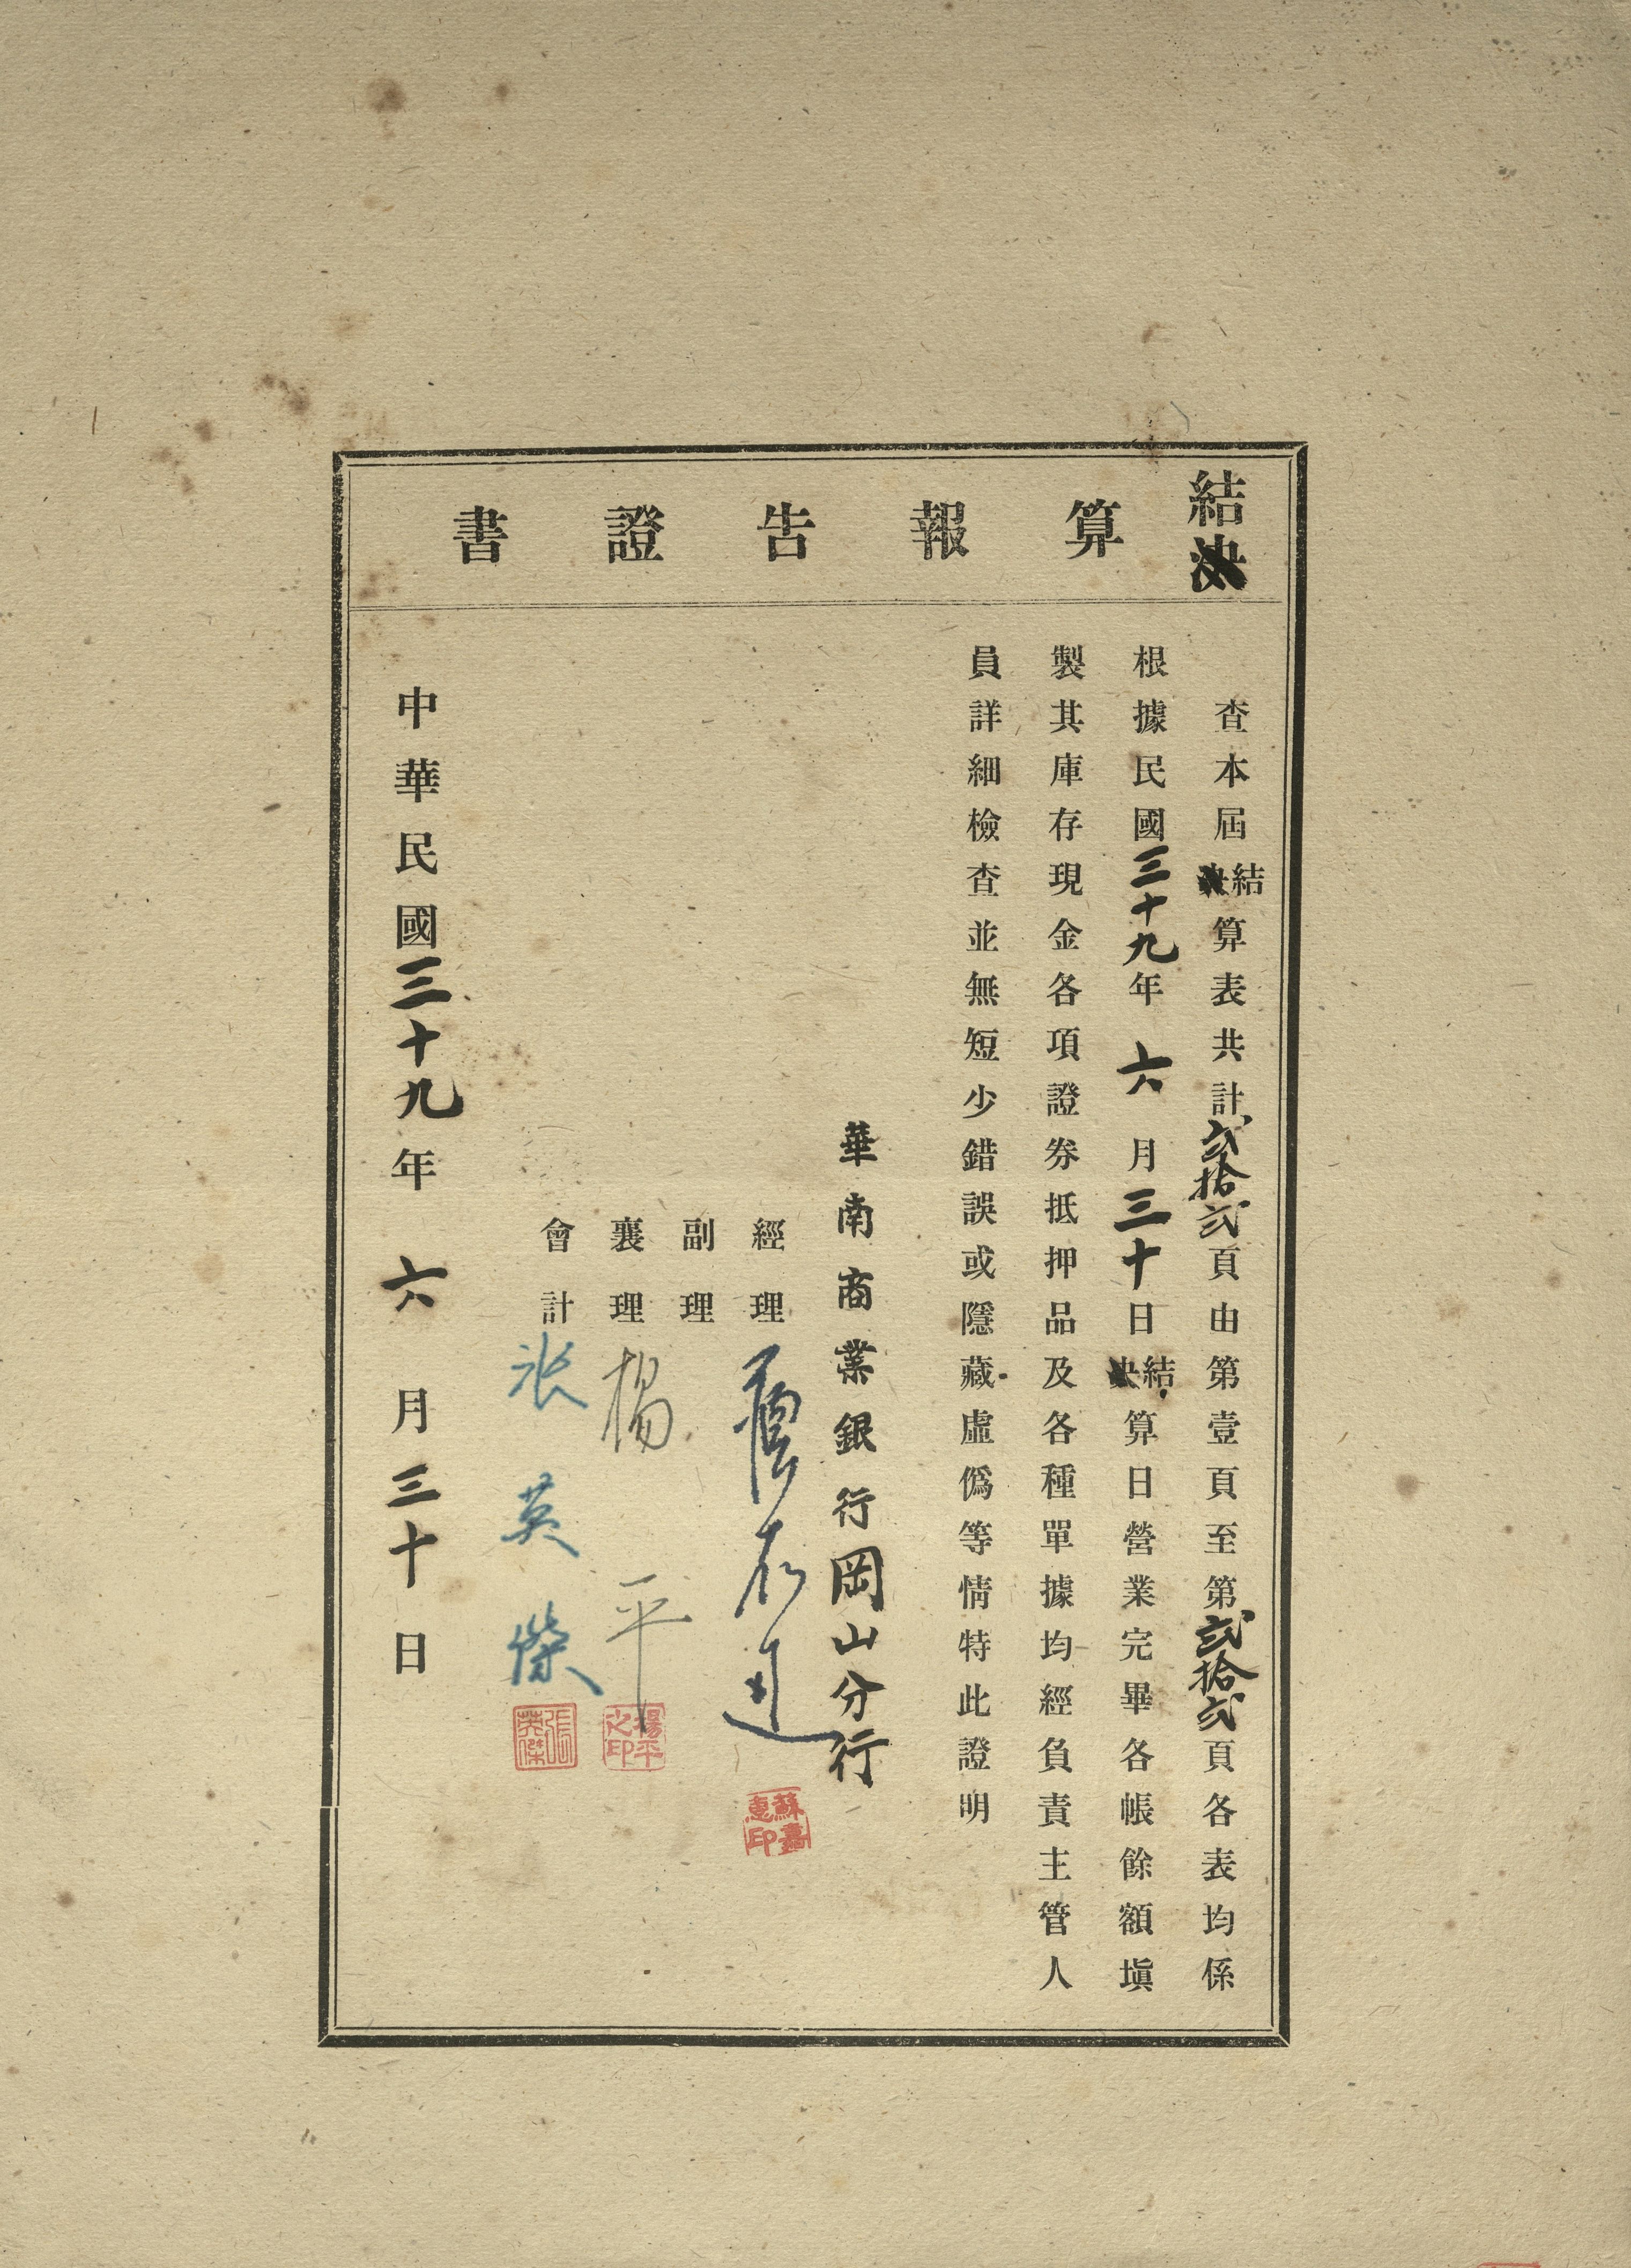 結算報告證書
查本屆結算表共計弍拾弍頁由第壹頁至第弍拾弍頁各表均係
根據民國三十九年六月三十日結算日營業完畢各帳餘額塡
製其庫存現金各項證券抵押品及各種單據均經負責主管人
員詳細檢查並無短少錯誤或隱藏虛僞等情特此證明
華南商業銀行岡山分行
經理
蘇嘉惠印
副理
襄理 楊平
楊平之印
會計 張英傑
張英傑
中華民國三十九年六月三十日